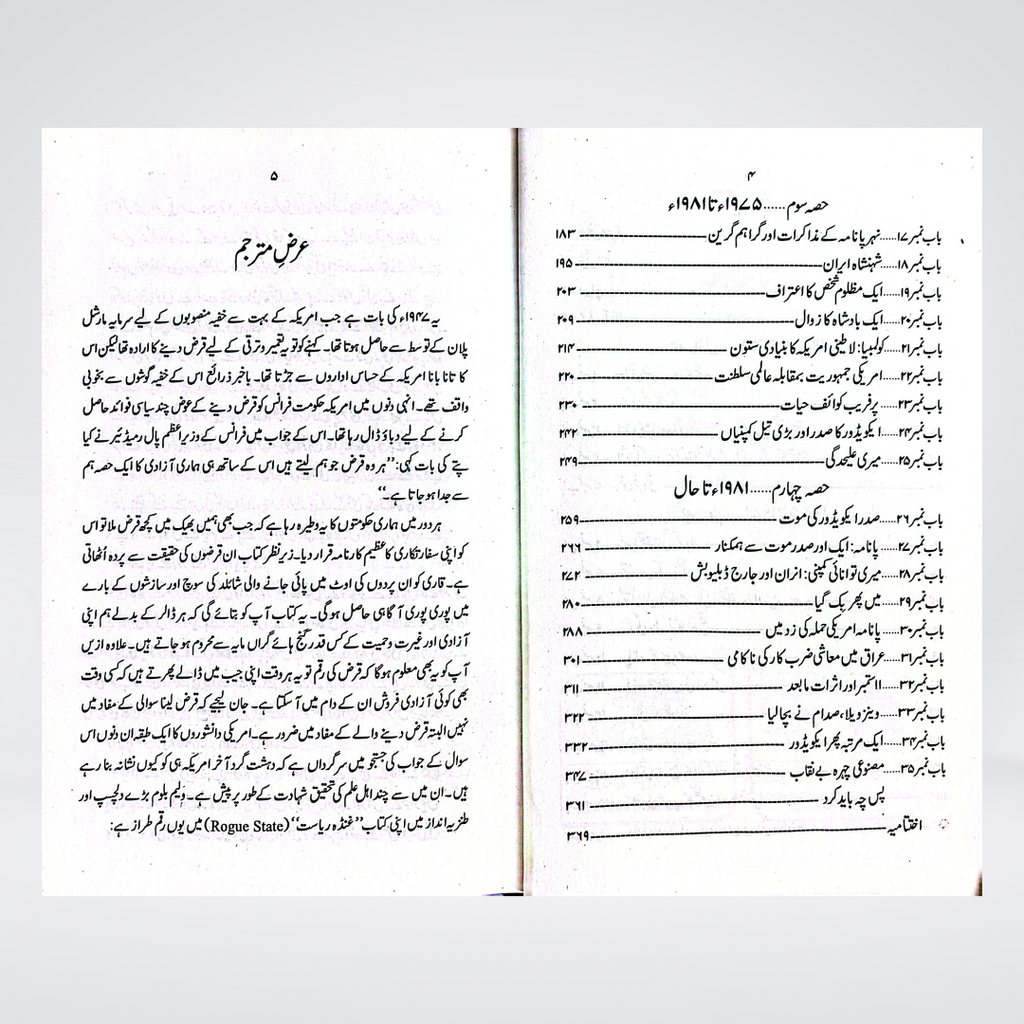 ۴
حصہ سوم......۱۹۷۵ء تا ۱۹۸۱ء
باب نمبر۱۷......نہر پانامہ کے مذاکرات اور گراہم گرین ۱۸۳
باب نمبر۱۸......شہنشاہ ایران ۱۹۵
باب نمبر۱۹......ایک مظلوم شخص کا اعتراف ۲۰۳
باب نمبر۲۰......ایک بادشاہ کا زوال ۲۰۹
باب نمبر۲۱......کولمبیا: لاطینی امریکہ کا بنیادی ستون ۲۱۴
باب نمبر۲۲......امریکی جمہوریت بمقابلہ عالمی سلطنت ۲۲۰
باب نمبر۲۳......پر فریب کوائف حیات ۲۳۰
باب نمبر۲۴......ایکویڈور کا صدر اور بڑی تیل کمپنیاں ۲۴۲
باب نمبر۲۵......میری علیحدگی ۲۴۹
حصہ چہارم......۱۹۸۱ء تا حال
باب نمبر۲۶......صدر ایکویڈور کی موت ۲۵۹
باب نمبر۲۷......پانامہ: ایک اور صدر موت سے ہمکنار ۲۶۶
باب نمبر۲۸......میری توانائی کمپنی: انران اور جارج ڈبلیو بش ۲۷۲
باب نمبر۲۹......میں پھر بک گیا ۲۸۰
باب نمبر۳۰......پانامہ امریکی حملہ کی زد میں ۲۸۸
باب نمبر۳۱......عراق میں معاشی ضرب کار کی ناکامی ۳۰۱
باب نمبر۳۲......۱۱ ستمبر اور اثرات مابعد ۳۱۱
باب نمبر۳۳......وینزویلا، صدام نے بچا لیا ۳۲۲
باب نمبر۳۴......ایک مرتبہ پھر ایکویڈور ۳۳۲
باب نمبر۳۵......مصنوعی چہرہ بے نقاب ۳۴۷
پس چہ باید کرد ۳۶۱
اختتامیہ ۳۶۹
۵
عرضِ مترجم
یہ ۱۹۴۷ء کی بات ہے جب امریکہ کے بہت سے خفیہ منصوبوں کے لیے سرمایہ مارشل
پلان کے توسط سے حاصل ہوتا تھا۔ کہنے کو تو یہ تعمیر و ترقی کے لیے قرض دینے کا ارادہ تھا لیکن اس
کا تانا بانا امریکہ کے حساس اداروں سے جڑتا تھا۔ باخبر ذرائع اس کے خفیہ گوشوں سے بخوبی
واقف تھے۔ انہی دنوں میں امریکہ حکومت فرانس کو قرض دینے کے عوض چند سیاسی فوائد حاصل
کرنے کے لیے دباؤ ڈال رہا تھا۔ اس کے جواب میں فرانس کے وزیراعظم پال رمیڈئیر نے کیا
پتے کی بات کہی: ”ہر وہ قرض جو ہم لیتے ہیں اس کے ساتھ ہی ہماری آزادی کا ایک حصہ ہم
سے جدا ہو جاتا ہے۔“
ہر دور میں ہماری حکومتوں کا یہ وطیرہ رہا ہے کہ جب بھی ہمیں بھیک میں کچھ قرض ملا تو اس
کو اپنی سفارتکاری کا عظیم کارنامہ قرار دیا۔ زیر نظر کتاب ان قرضوں کی حقیقت سے پردہ اُٹھاتی
ہے۔ قاری کو ان پردوں کی اوٹ میں پائی جانے والی شائلد کی سوچ اور سازشوں کے بارے
میں پوری پوری آگاہی حاصل ہوگی۔ یہ کتاب آپ کو بتائے گی کہ ہر ڈالر کے بدلے ہم اپنی
آزادی اور غیرت و حمیت کے کس قدر گنج ہائے گراں مایہ سے محروم ہو جاتے ہیں۔ علاوہ ازیں
آپ کو یہ بھی معلوم ہوگا کہ قرض کی رقم تو یہ ہر وقت اپنی جیب میں ڈالے پھرتے ہیں کہ کسی وقت
بھی کوئی آزادی فروش ان کے دام میں آ سکتا ہے۔ جان لیجیے کہ قرض لینا سوالی کے مفاد میں
نہیں البتہ قرض دینے والے کے مفاد میں ضرور ہے۔ امریکی دانشوروں کا ایک طبقہ ان دنوں اس
سوال کے جواب کی جستجو میں سرگرداں ہے کہ دہشت گرد آخر امریکہ ہی کو کیوں نشانہ بنا رہے
ہیں۔ ان میں سے چند اہل علم کی تحقیق شہادت کے طور پر پیش ہے۔ ولیم بلوم بڑے دلچسپ اور
طنزیہ انداز میں اپنی کتاب ”غنڈہ ریاست“ (Rogue State) میں یوں رقم طراز ہے: